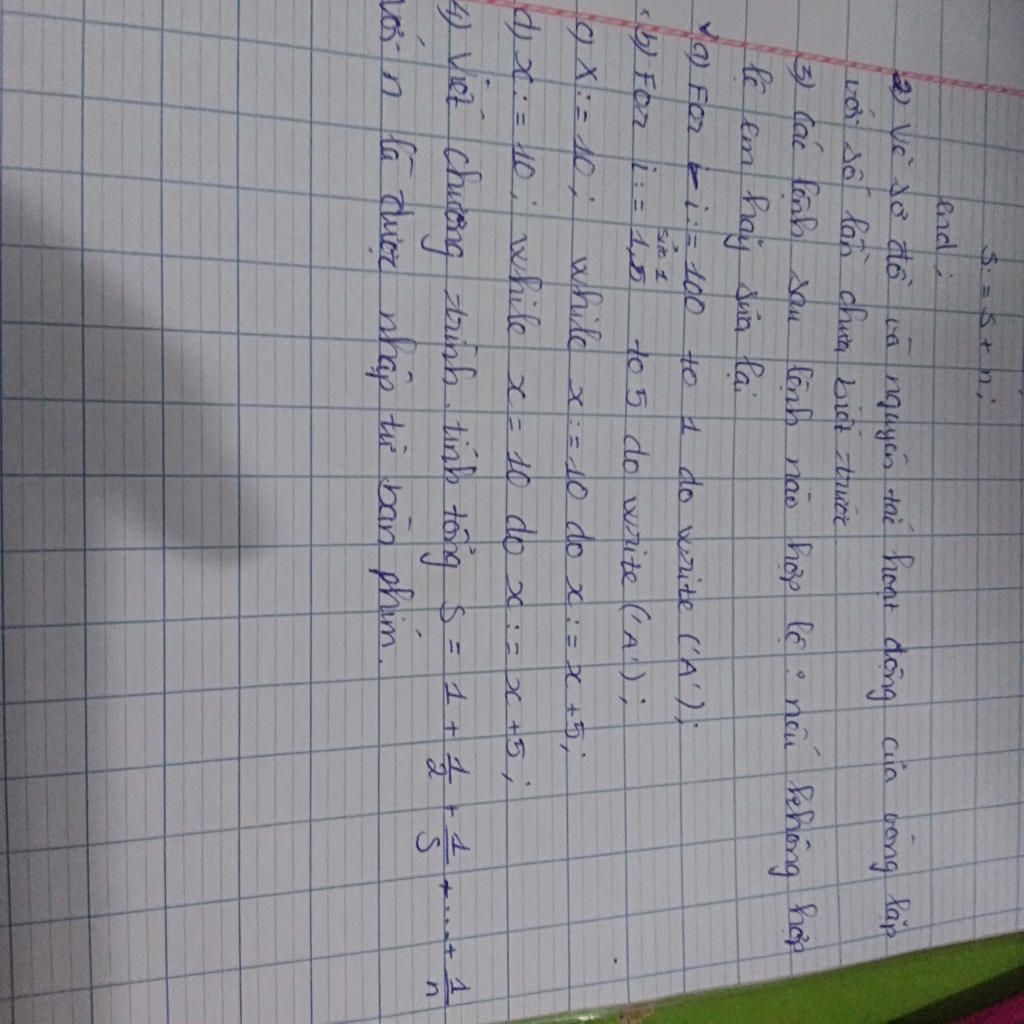 S:=S+n;
end;
2) Vẽ sơ đồ và nguyên tắc hoạt động của vòng lặp
với số lần chưa biết trước
3) Các lệnh sau lệnh nào hợp lệ? nếu không hợp
lệ em hãy sửa lại
a) For i:=100 to 1 do write ('A');
sửa 1
b) For i:=1,5 to 5 do write ('A');
c) X:=10; while x:=10 do x:=x+5;
d) x:=10; while x=10 do x:=x+5;
4) Viết chương trình tính tổng S = 1 + 1/2 + 1/3 + .... + 1/n
với n là được nhập từ bàn phím.